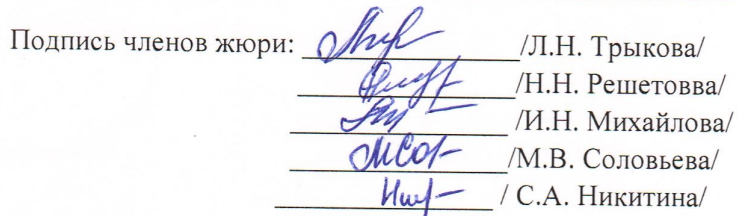 Подпись членов жюри: /Л.Н. Трыкова/
/Н.Н. Решетовва/
/И.Н. Михайлова/
/М.В. Соловьева/
/ С.А. Никитина/